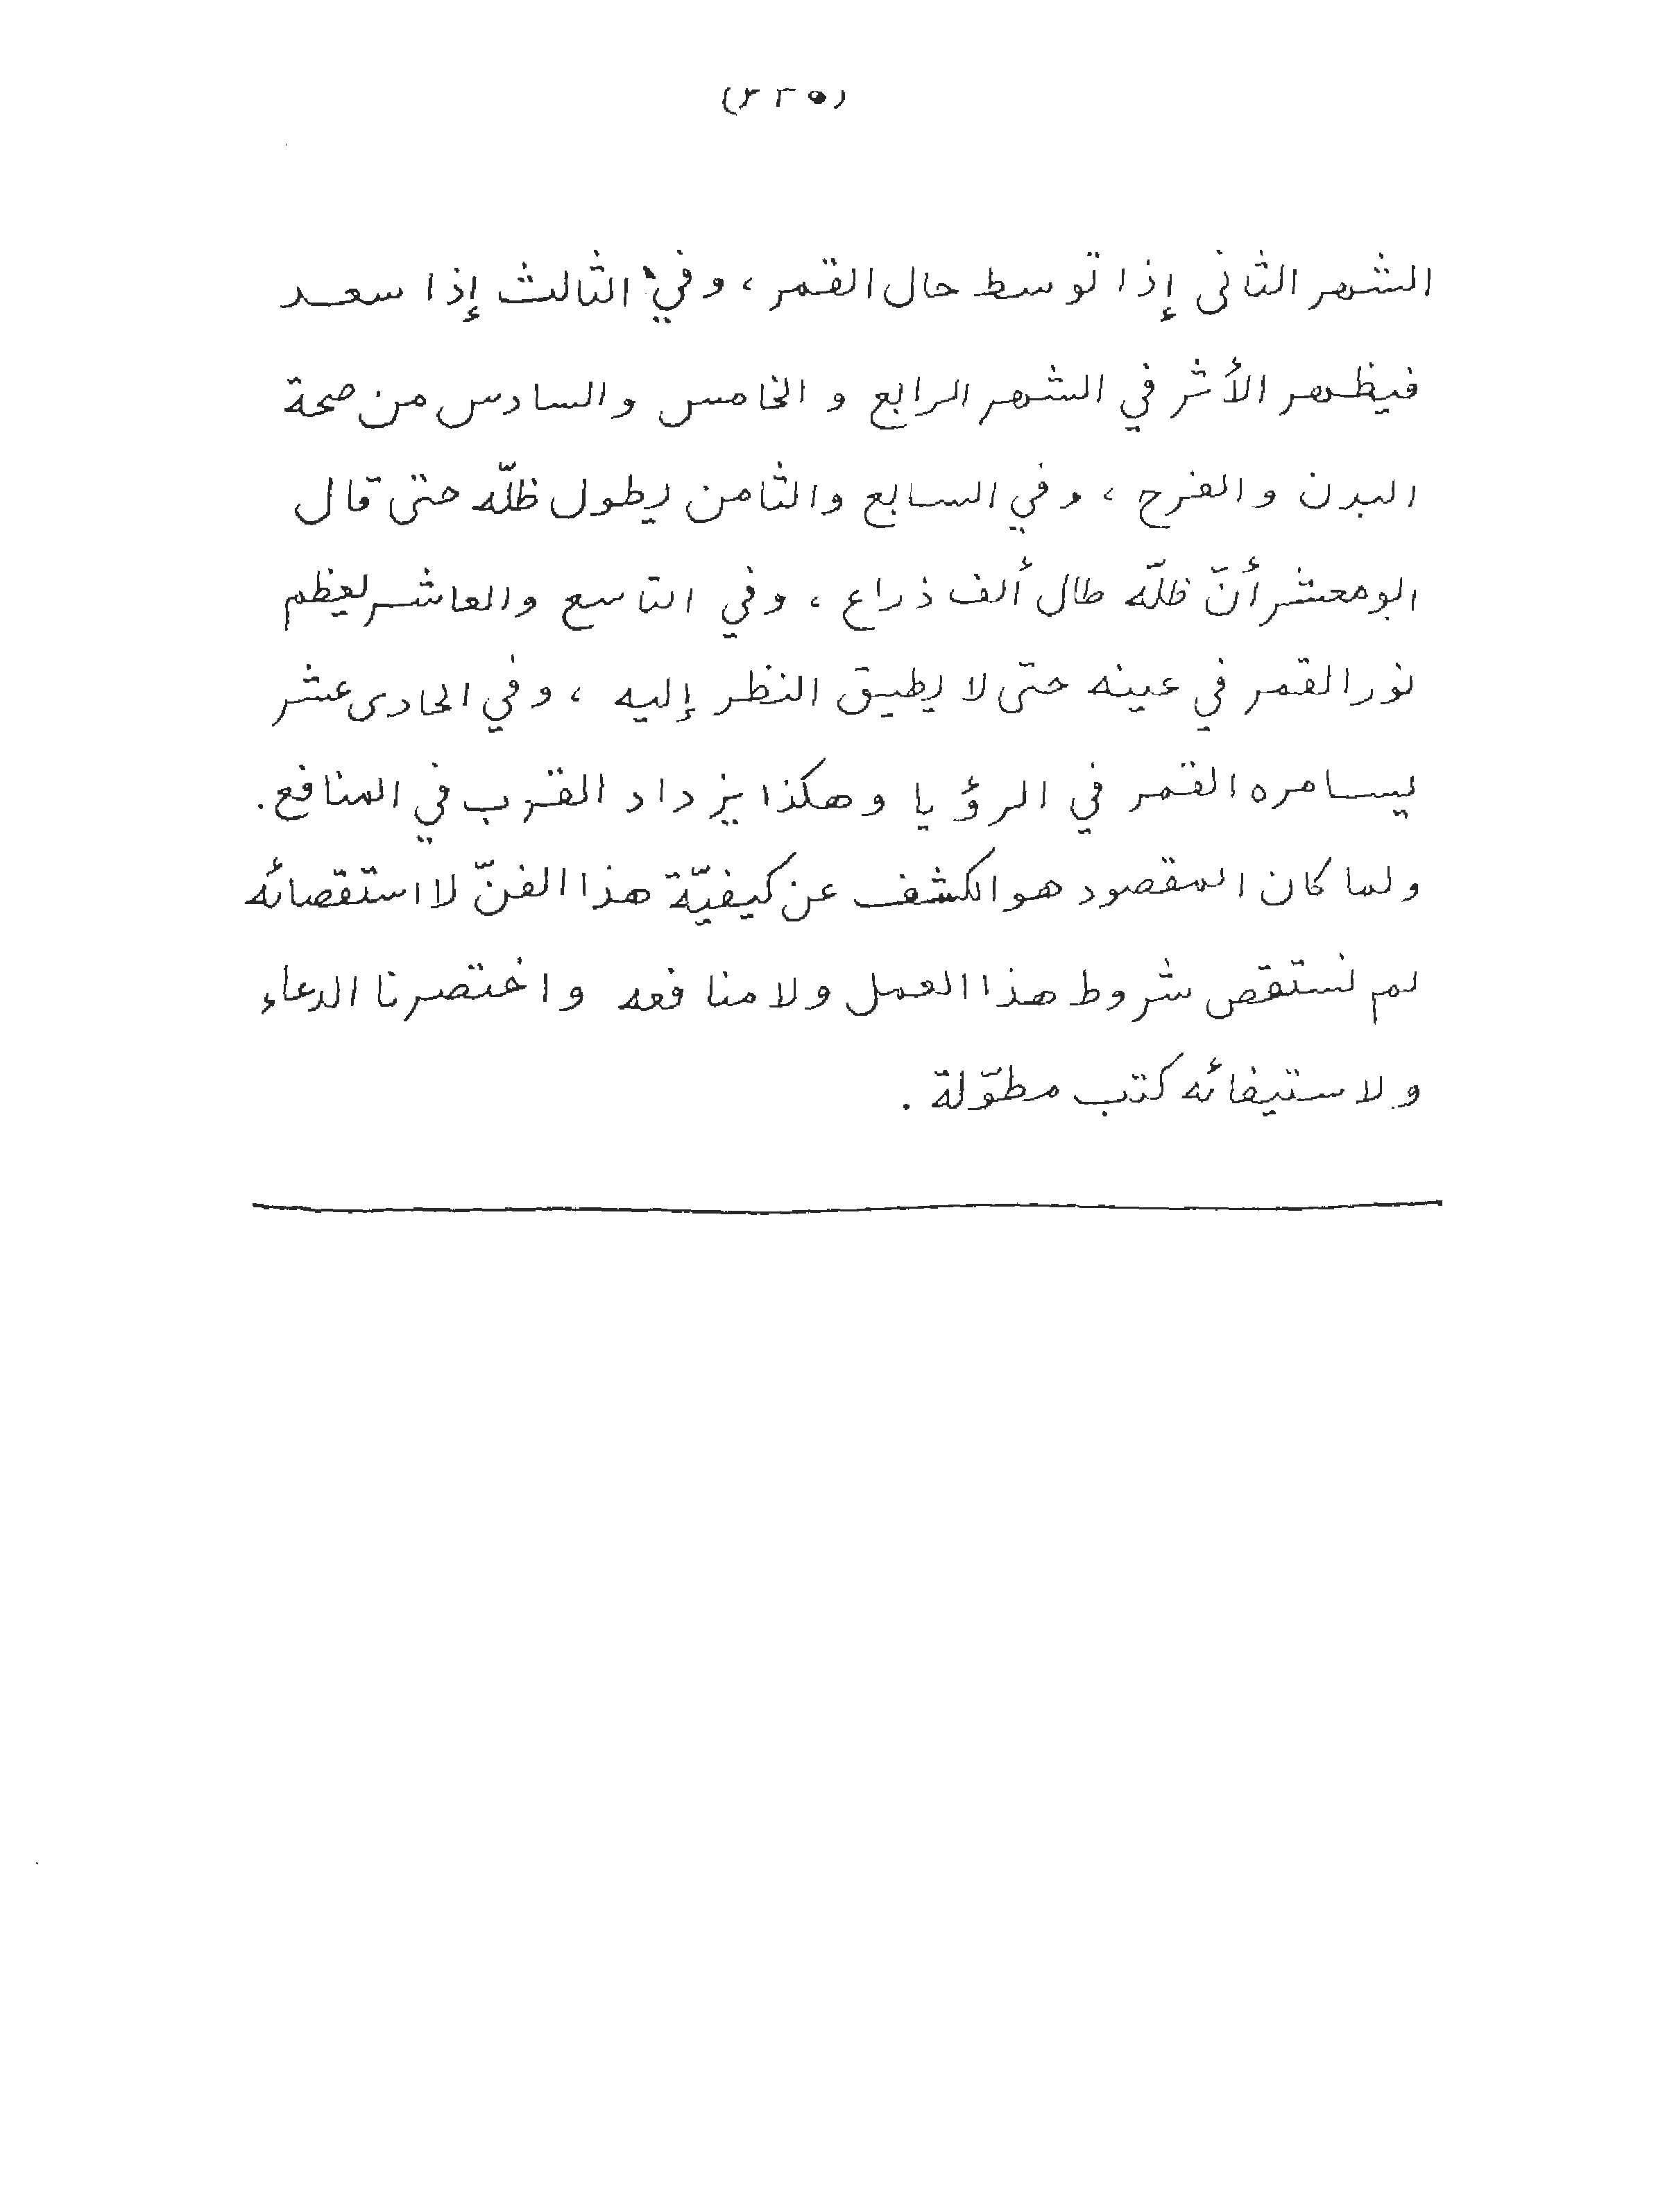 (٢٢٥)
الشهر الثانى إذا توسط حال القمر ، وفي الثالث إذا سعد
فيظهر الأثر في الشهر الرابع و الخامس والسادس من صحة
البدن والفرح ، وفي السابع والثامن يطول ظلّه حتى قال
ابومعشر أنّ ظلّه طال ألف ذراع ، وفي التاسع والعاشر يعظم
نور القمر في عينه حتى لا يطيق النظر إليه ، وفي الحادى عشر
يسامره القمر في الرؤيا وهكذا يزداد القرب في المنافع .
ولما كان المقصود هو الكشف عن كيفيّة هذا الفنّ لا استقصائه
لم نستقص شروط هذا العمل ولا منافعه واختصرنا الدعاء
ولاستيفائه كتب مطوّلة .